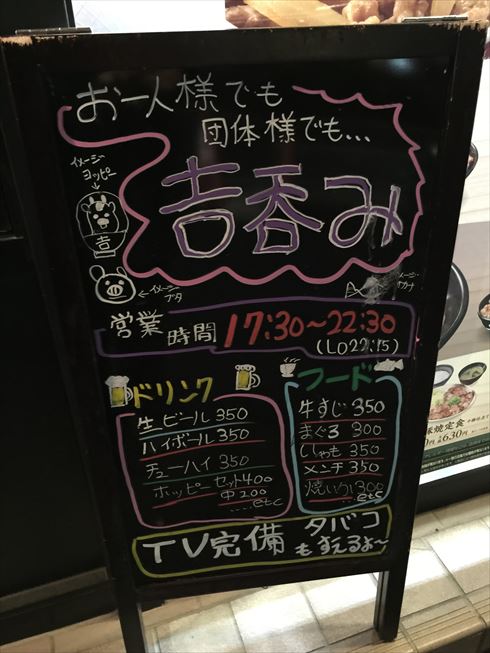 お一人様でも
団体様でも...
吉呑み
イメージ
ヨッピー
吉
←イメージ
ブタ
イメージ
サカナ
営業時間 17:30〜22:30
(LO22:15)
ドリンク
生ビール 350
ハイボール 350
チューハイ 350
ホッピー セット400
中200
...etc
フード
牛すじ 350
まぐろ 300
ししゃも 350
メンチ 350
300
...etc
TV完備 タバコ
もすえるよ〜
焼定食
630円